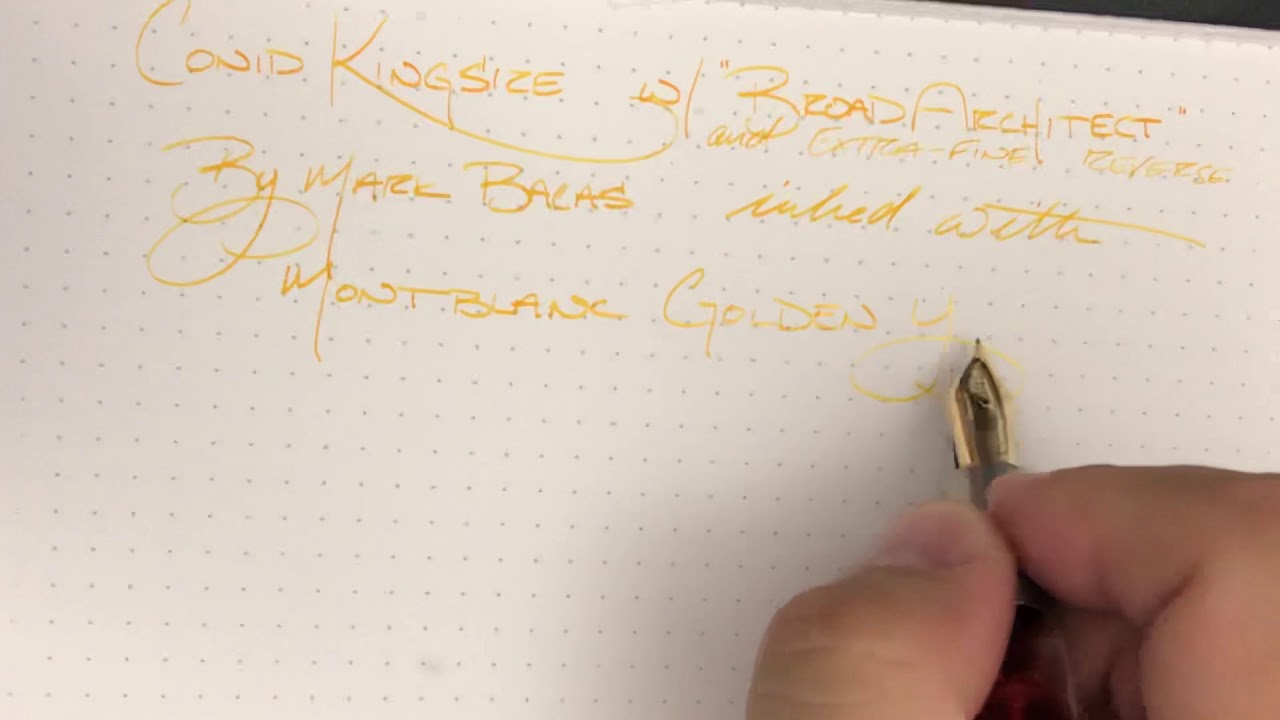 Conid Kingsize w/ "Broad Architect"
and Extra-fine reverse
By Mark Bacas inked with
Montblanc Golden Y